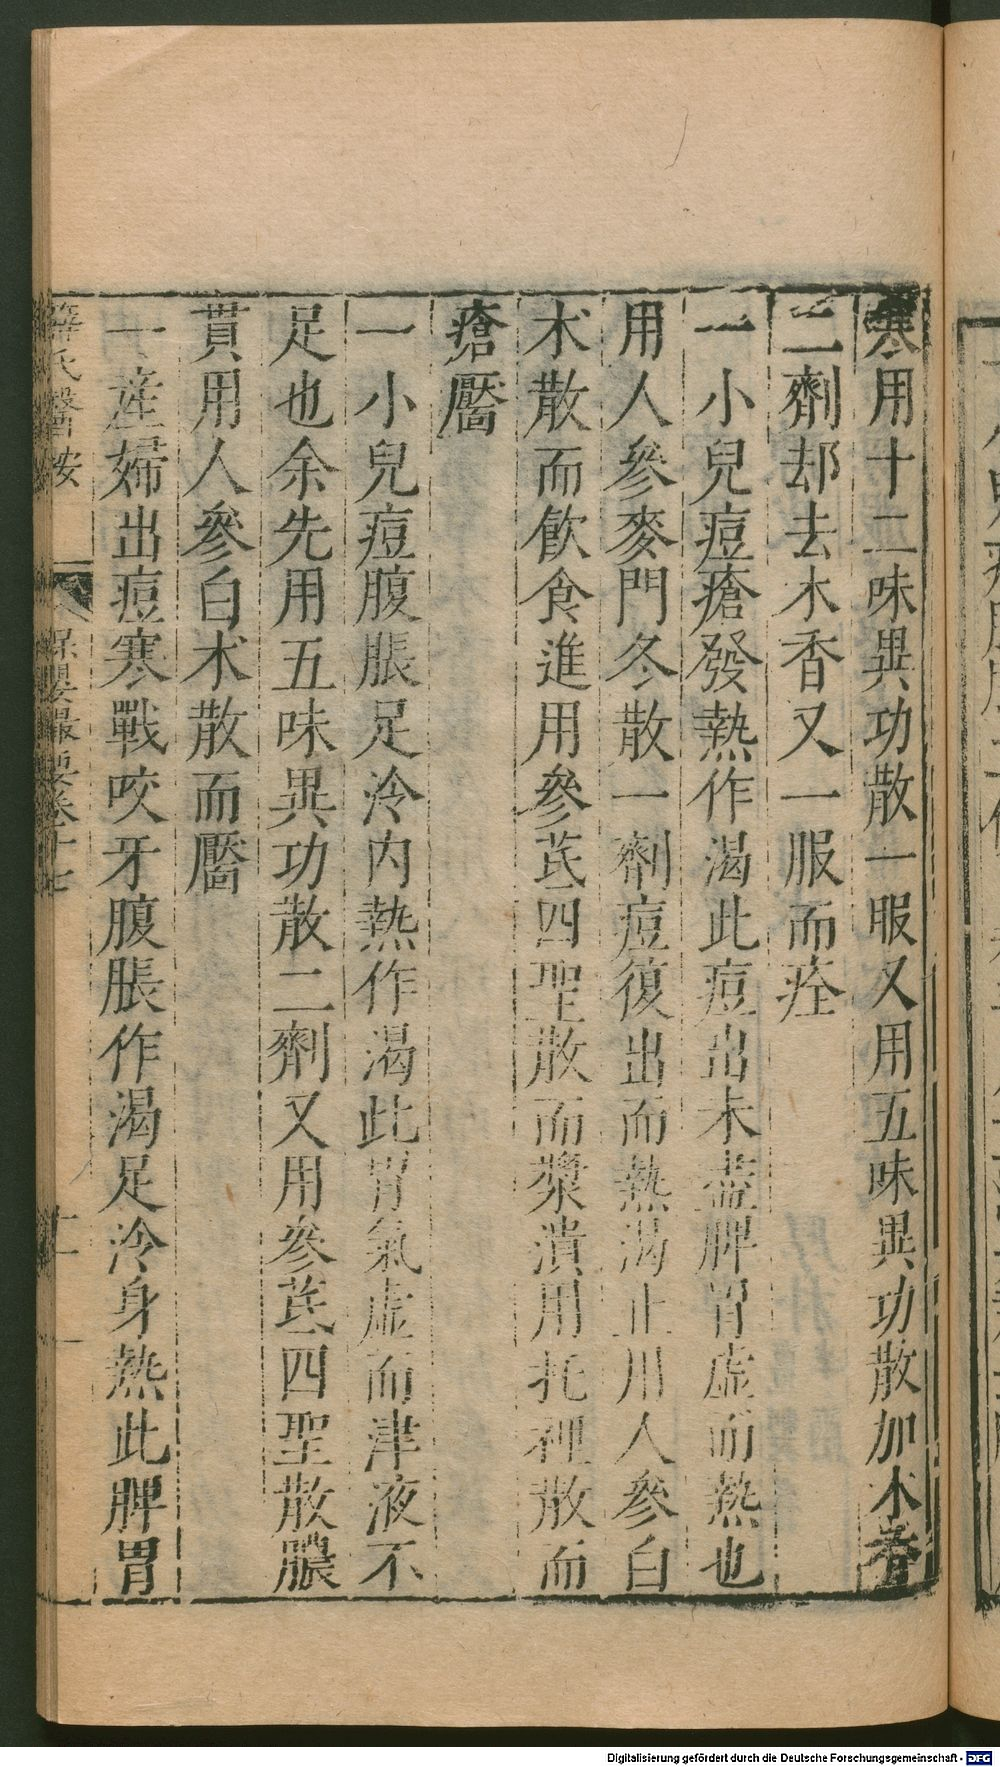 寒用十二味異功散一服又用五味異功散加木香
二劑却去木香又一服而痊
一小兒痘瘡發熱作渴此痘出未盡脾胃虛而熱也
用人參麥門冬散一劑痘復出而熱渴止用人參白
朮散而飲食進用參芪四聖散而漿潰用托裡散而
瘡靨
一小兒痘腹脹足冷內熱作渴此胃氣虛而津液不
足也余先用五味異功散二劑又用參芪四聖散膿
貫用人參白朮散而靨
一産婦出痘寒戰咬牙腹脹作渴足冷身熱此脾胃
薛氏醫按
保嬰撮要卷十七
十一
Digitalisierung gefördert durch die Deutsche Forschungsgemeinschaft - DFG